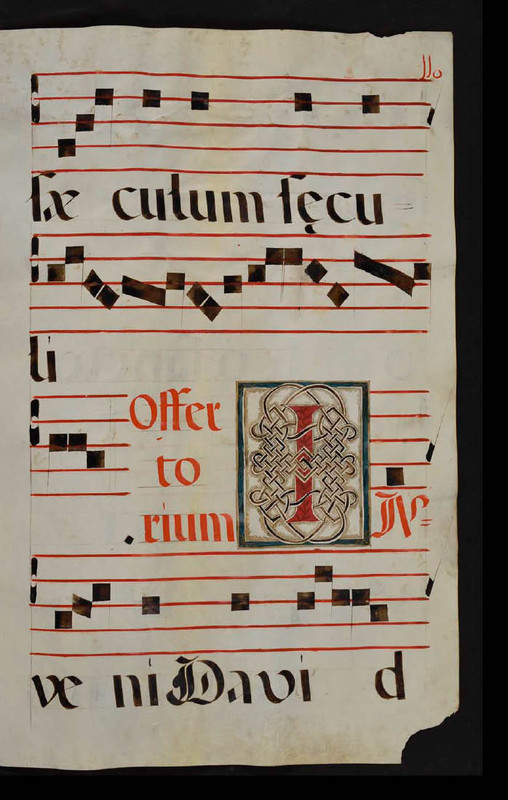 110
ſæ culum ſęcu=
li
Offer
to
.rium I N=
ve ni David